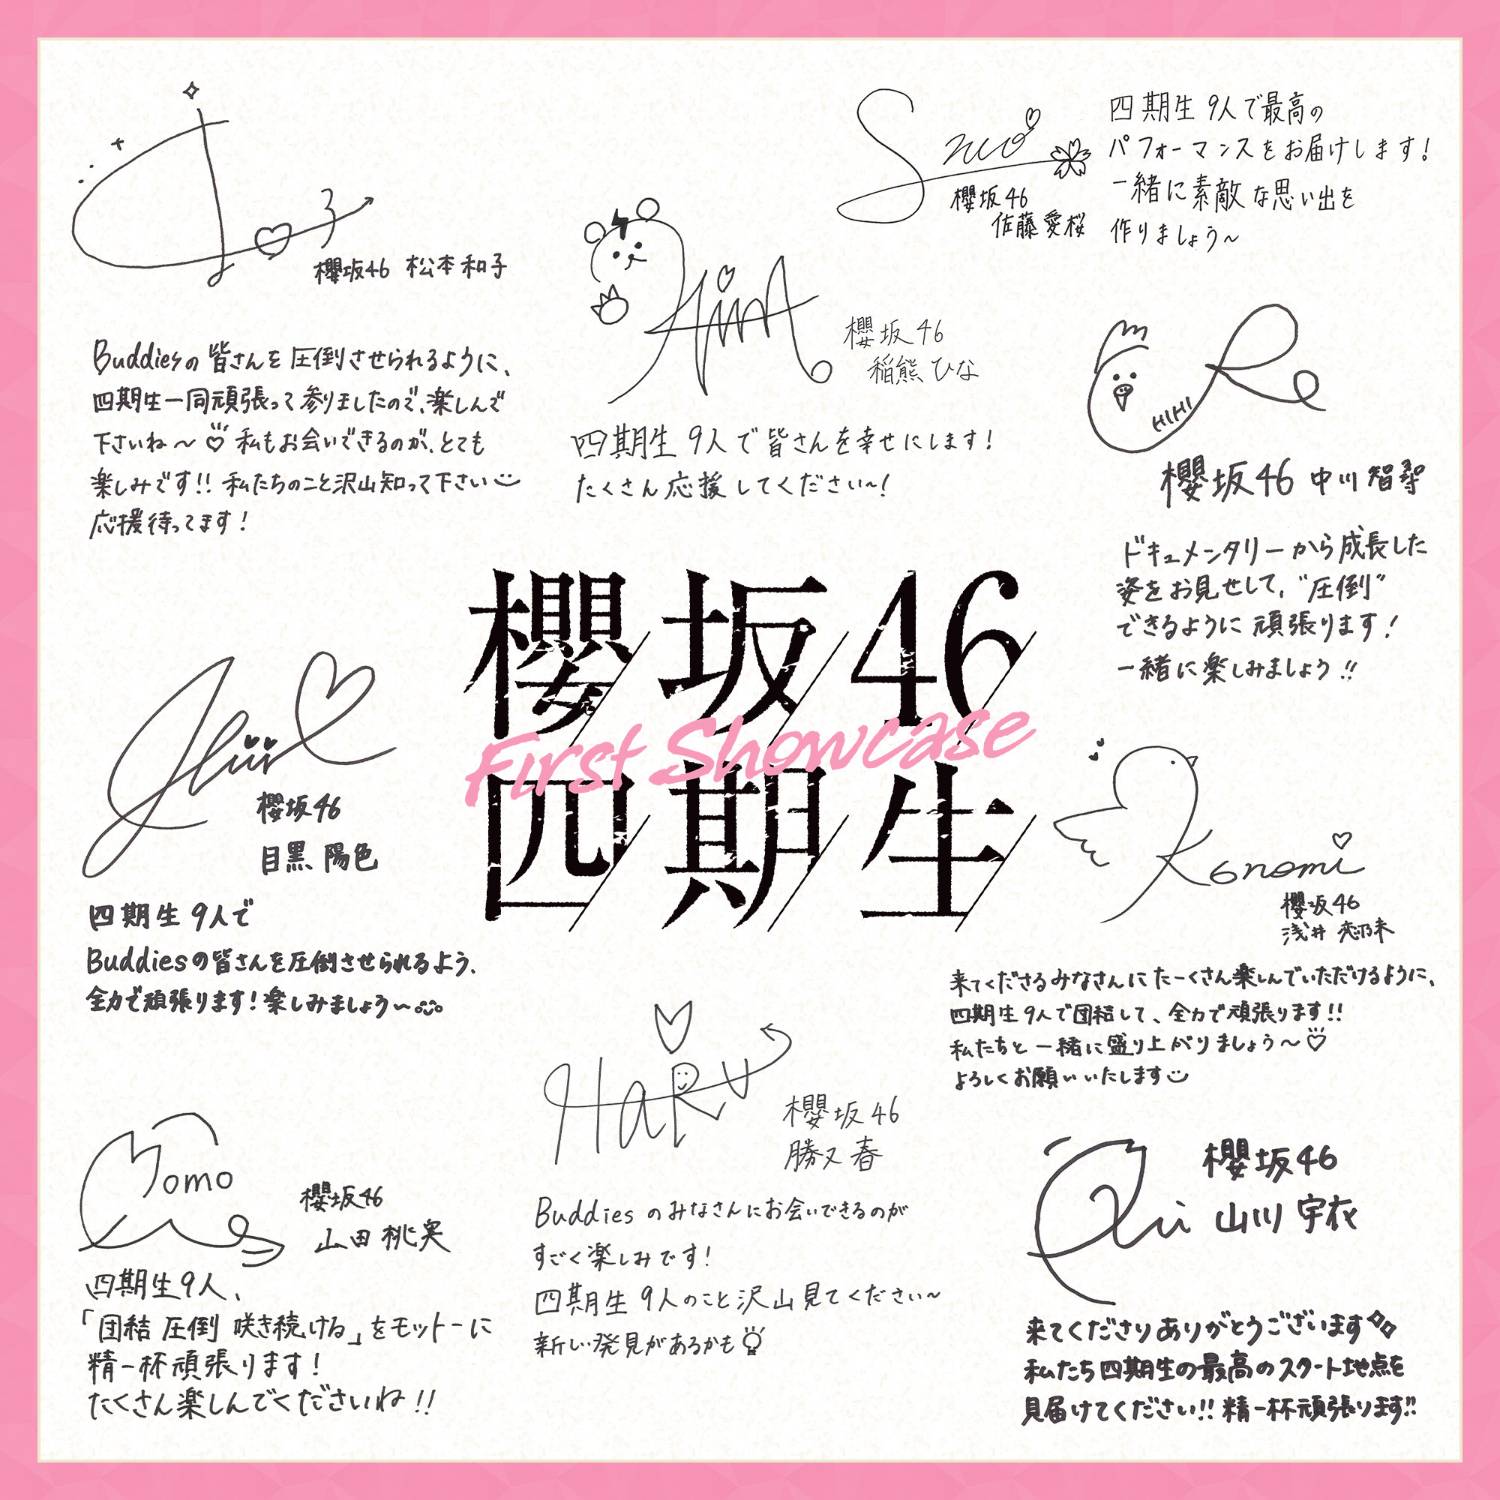 櫻坂46 松本和子
Buddiesの皆さんを圧倒させられるように、
四期生一同頑張って参りましたので、楽しんで
下さいね〜♡ 私もお会いできるのが、とても
楽しみです!! 私たちのこと沢山知って下さい
応援待ってます!
Hina
櫻坂46
稲熊ひな
四期生 9人で皆さんを幸せにします!
たくさん応援してください〜!
櫻坂46
佐藤愛桜
四期生 9人で最高の
パフォーマンスをお届けします!
一緒に素敵な思い出を
作りましょう〜
HIHI
櫻坂46 中川智尋
ドキュメンタリーから成長した
姿をお見せして、"圧倒"
できるように頑張ります!
一緒に楽しみましょう!!
櫻坂46
四期生
First Showcase
櫻坂46
目黒 陽色
四期生 9人で
Buddiesの皆さんを圧倒させられるよう、
全力で頑張ります!楽しみましょう〜
Konomi
櫻坂46
浅井 恋乃未
来てくださるみなさんにたーくさん楽しんでいただけるように、
四期生 9人で団結して、全力で頑張ります!!
私たちと一緒に盛り上がりましょう〜♡
よろしくお願いいたします
HARU
櫻坂46
勝又 春
Buddies のみなさんにお会いできるのが
すごく楽しみです!
四期生 9人のこと沢山見てください〜
新しい発見があるかも
Momo
櫻坂46
山田 桃実
四期生9人、
「団結 圧倒 咲き続ける」をモットーに
精一杯頑張ります!
たくさん楽しんでくださいね!!
櫻坂46
山川 宇衣
来てくださりありがとうございます
私たち四期生の最高のスタート地点を
見届けてください!! 精一杯頑張ります!!